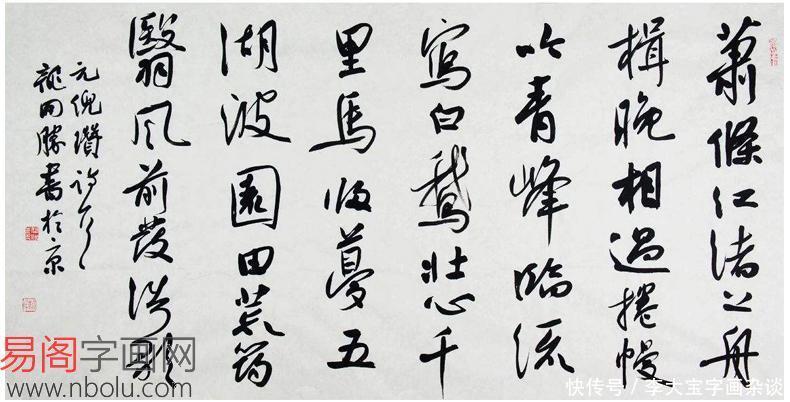 蕭條江渚上舟
楫晚相過捲幔
吟青峰臨流
寫白鵝壯心千
里馬归夢五
湖波園田荒筠
翳風前發浩歌
元倪瓚詩一首
龍開勝書於京
易阁字画网
www.nbolu.com
快传号/李大宝字画杂谈